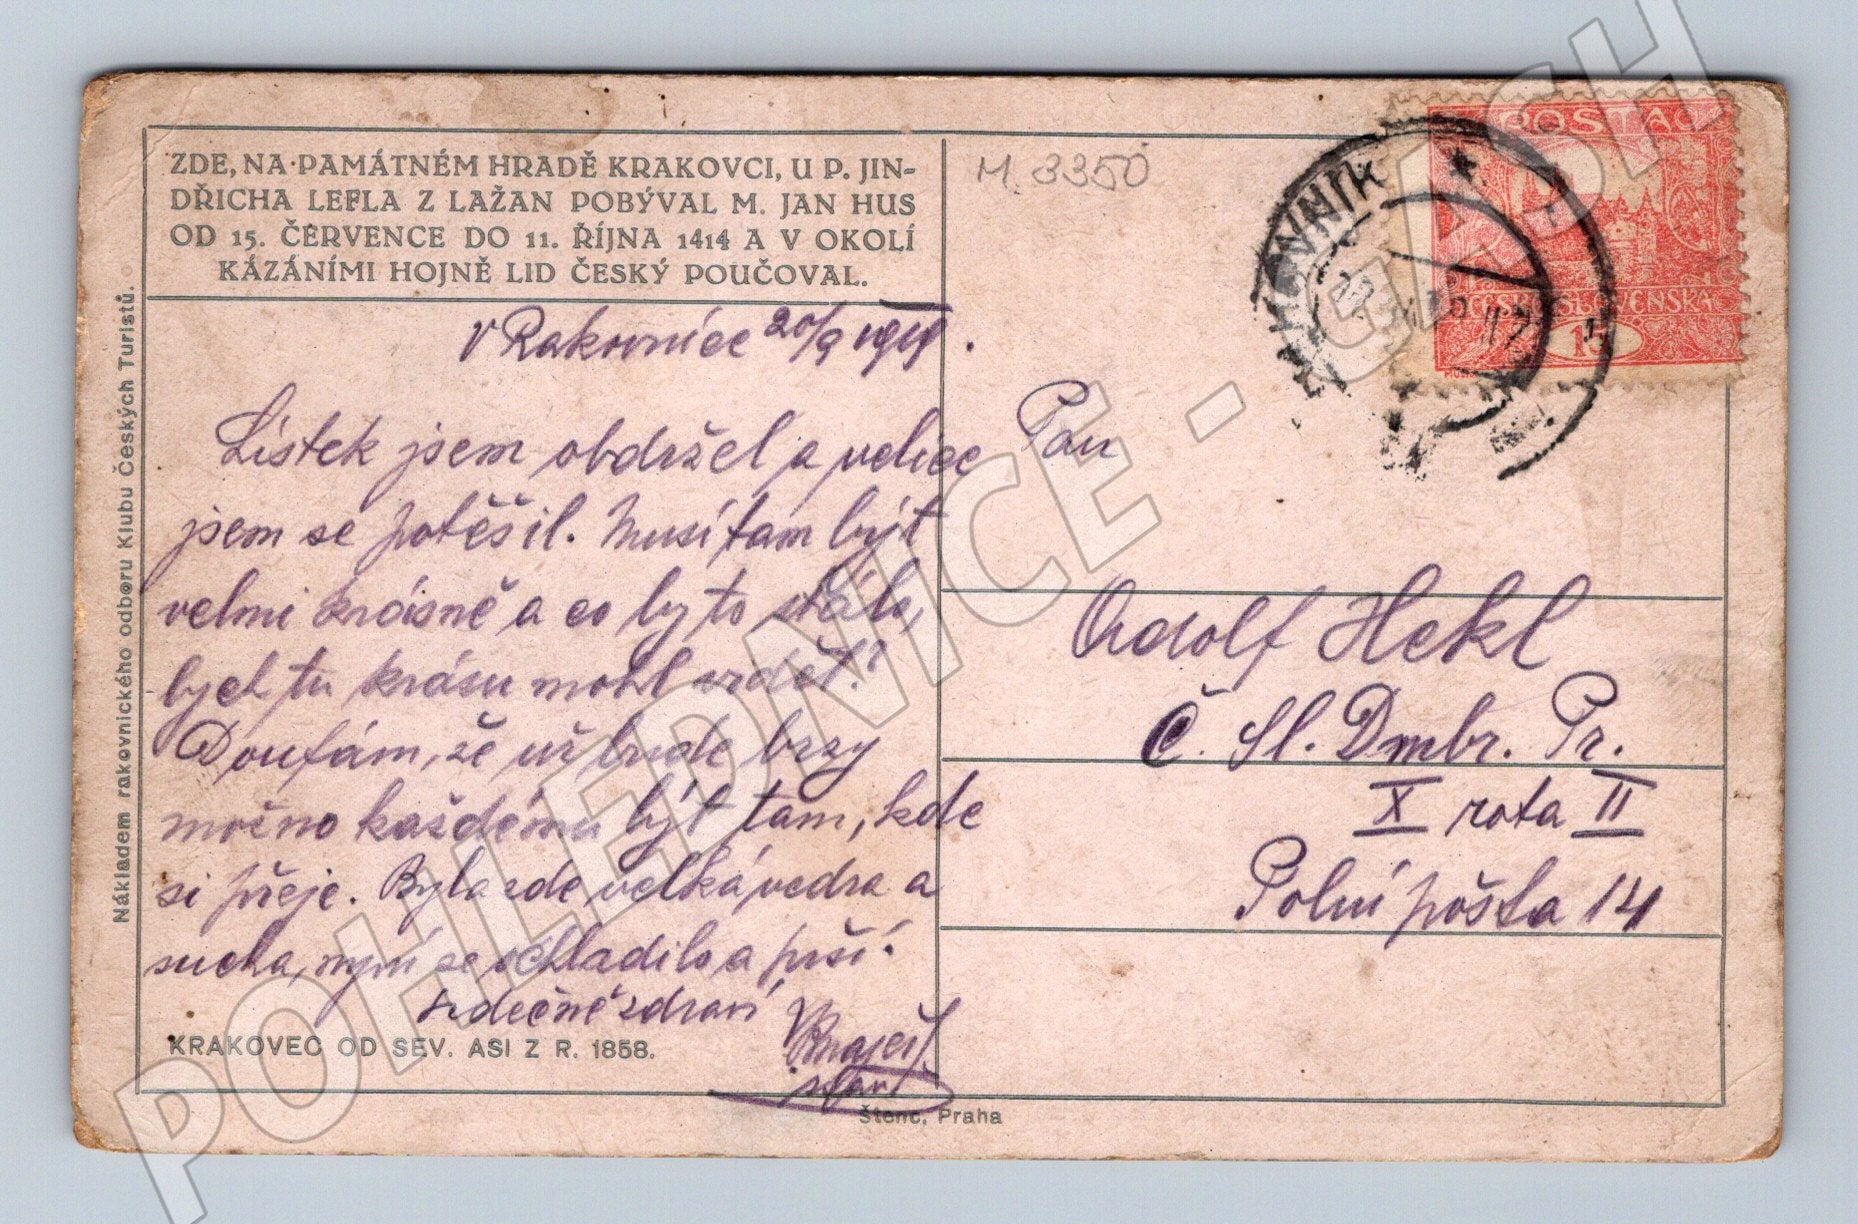 ZDE, NA PAMÁTNÉM HRADĚ KRAKOVCI, U P. JIN-
DŘICHA LEFLA Z LAŽAN POBÝVAL M. JAN HUS
OD 15. ČERVENCE DO 11. ŘÍJNA 1414 A V OKOLÍ
KÁZÁNÍMI HOJNĚ LID ČESKÝ POUČOVAL.
V Rakovníce 20/9 1919.
Lístek jsem obdržel a velice
jsem se potěšil. Musí tam být
velmi krásně a co by to stálo,
bych tu krásu mohl vidět!
Doufám, že už bude brzy
možno každému být tam, kde
si přeje. Byla zde velká vedra a
sucha, nyní se ochladilo a prší.
Srdečně zdraví
KRAKOVEC OD SEV. ASI Z R. 1858.
Nákladem rakovnického odboru Klubu Českých Turistů.
Štenc, Praha
M. 3350
POŠTA
ČESKOSLOVENSKÁ
15
Pan
Adolf Hekl
Č. Sl. Dmbr. Pr.
X rota II
Polní pošta 14
POHLEDNICE - CASH